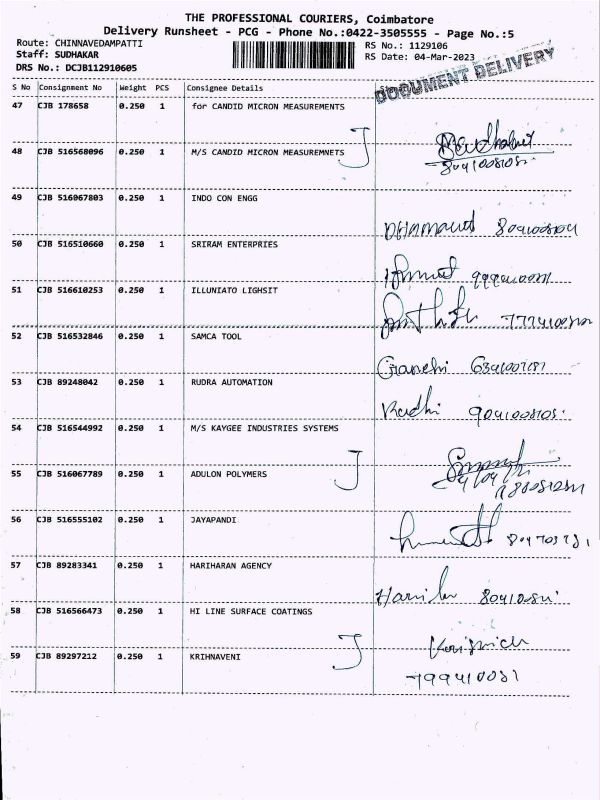 THE PROFESSIONAL COURIERS, Coimbatore
Delivery Runsheet - PCG - Phone No.:0422-3505555 - Page No.:5
Route: CHINNAVEDAMPATTI
RS No.: 1129106
Staff: SUDHAKAR
RS Date: 04-Mar-2023
DRS No.: DCJB112910605
DOCUMENT DELIVERY
S No Consignment No Weight PCS Consignee Details
47 CJB 178658 0.250 1 for CANDID MICRON MEASUREMENTS
48 CJB 516568096 0.250 1 M/S CANDID MICRON MEASUREMNETS
49 CJB 516067803 0.250 1 INDO CON ENGG
50 CJB 516510660 0.250 1 SRIRAM ENTERPRIES
51 CJB 516610253 0.250 1 ILLUNIATO LIGHSIT
52 CJB 516532846 0.250 1 SAMCA TOOL
53 CJB 89248042 0.250 1 RUDRA AUTOMATION
54 CJB 516544992 0.250 1 M/S KAYGEE INDUSTRIES SYSTEMS
55 CJB 516067789 0.250 1 ADULON POLYMERS
56 CJB 516555102 0.250 1 JAYAPANDI
57 CJB 89283341 0.250 1 HARIHARAN AGENCY
58 CJB 516566473 0.250 1 HI LINE SURFACE COATINGS
59 CJB 89297212 0.250 1 KRIHNAVENI